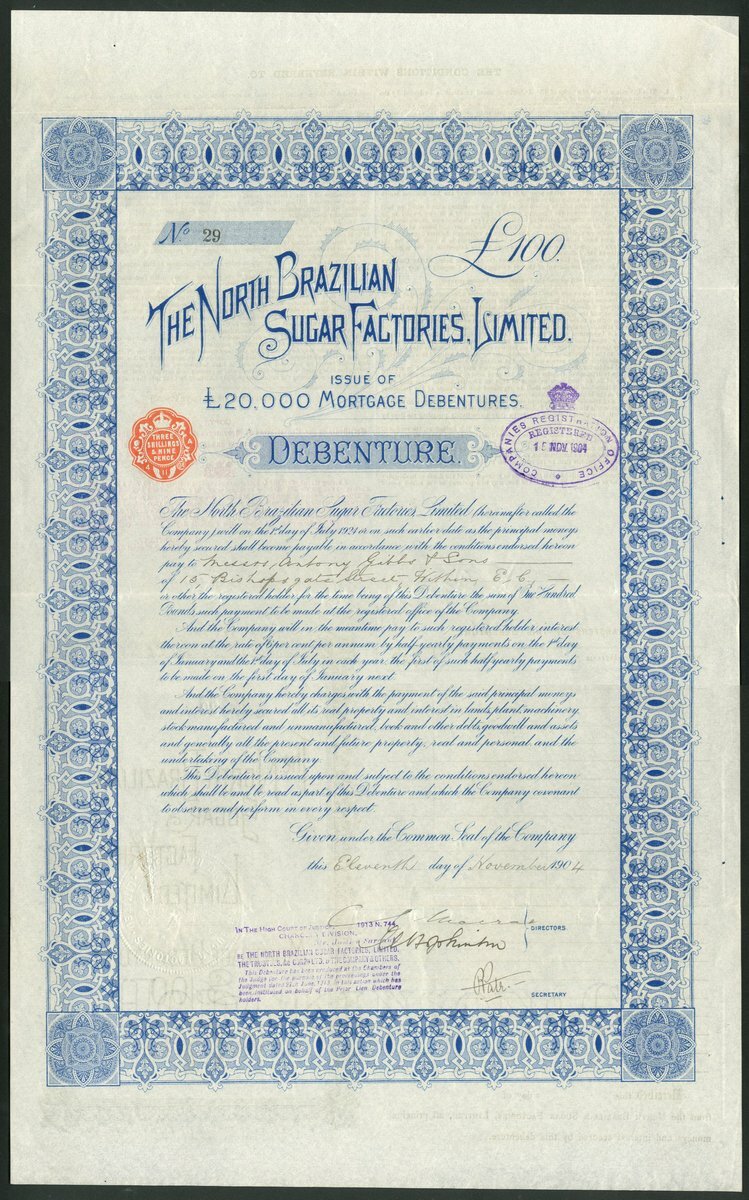 No. 29
£100.
THE NORTH BRAZILIAN
SUGAR FACTORIES, LIMITED.
ISSUE OF
£20,000 MORTGAGE DEBENTURES.
THREE
SHILLINGS
& NINE
PENCE
DEBENTURE.
COMPANIES REGISTRATION OFFICE
REGISTERED
15 NOV. 1904
The North Brazilian Sugar Factories Limited (hereinafter called the
Company) will on the 1st day of July 1924 or on such earlier date as the principal moneys
hereby secured shall become payable in accordance with the conditions endorsed hereon
pay to Messrs, Antony Gibbs & Sons
of 15, Bishopsgate Street, Within, E.C,
or other the registered holder for the time being of this Debenture the sum of One Hundred
Pounds such payment to be made at the registered office of the Company.
And the Company will in the meantime pay to such registered holder interest
thereon at the rate of 6 per cent per annum by half-yearly payments on the 1st day
of January and the 1st day of July in each year, the first of such half yearly payments
to be made on the first day of January next.
And the Company hereby charges with the payment of the said principal moneys
and interest hereby secured all its real property and interest in lands, plant, machinery,
stock manufactured and unmanufactured, book and other debts, goodwill and assets
and generally all the present and future property, real and personal and the
undertaking of the Company.
This Debenture is issued upon and subject to the conditions endorsed hereon
which shall be and be read as part of this Debenture and which the Company covenant
to observe and perform in every respect.
Given under the Common Seal of the Company
this Eleventh day of November 1904
DIRECTORS
SECRETARY
IN THE HIGH COURT OF JUSTICE, 1913 N. 744.
CHANCERY DIVISION.
RE THE NORTH BRAZILIAN SUGAR FACTORIES, LIMITED.
This Debenture has been produced at the Chambers of
the Judge for the purpose of the proceedings under the
Judgment dated June, 1913, in this action which has
been instituted on behalf of the Prior Lien Debenture
holders.